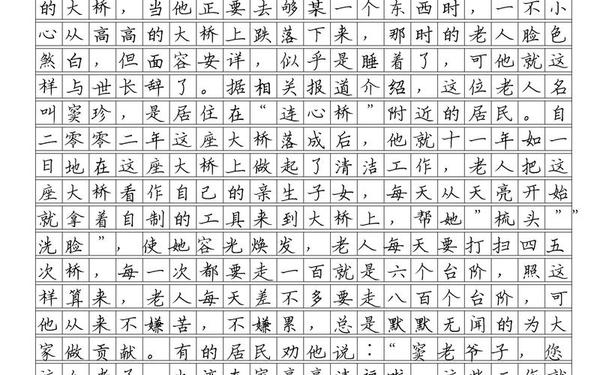 的大桥，当他正要去够某一个东西时，一不小
心从高高的大桥上跌落下来，那时的老人脸色
煞白，但面容安详，似乎是睡着了，可他就这
样与世长辞了。据相关报道介绍，这位老人名
叫窦珍，是居住在“连心桥”附近的居民。自
二零零二年这座大桥落成后，他就十一年如一
日地在这座大桥上做起了清洁工作，老人把这
座大桥看作自己的亲生子女，每天从天亮开始
就拿着自制的工具来到大桥上，帮她”梳头””
洗脸”，使她容光焕发，老人每天要打扫四五
次桥，每一次都要走一百就是六个台阶，照这
样算来，老人每天差不多要走八百个台阶，可
他从来不嫌苦，不嫌累，总是默默无闻的为大
家做贡献。有的居民劝他说：“窦老爷子，您